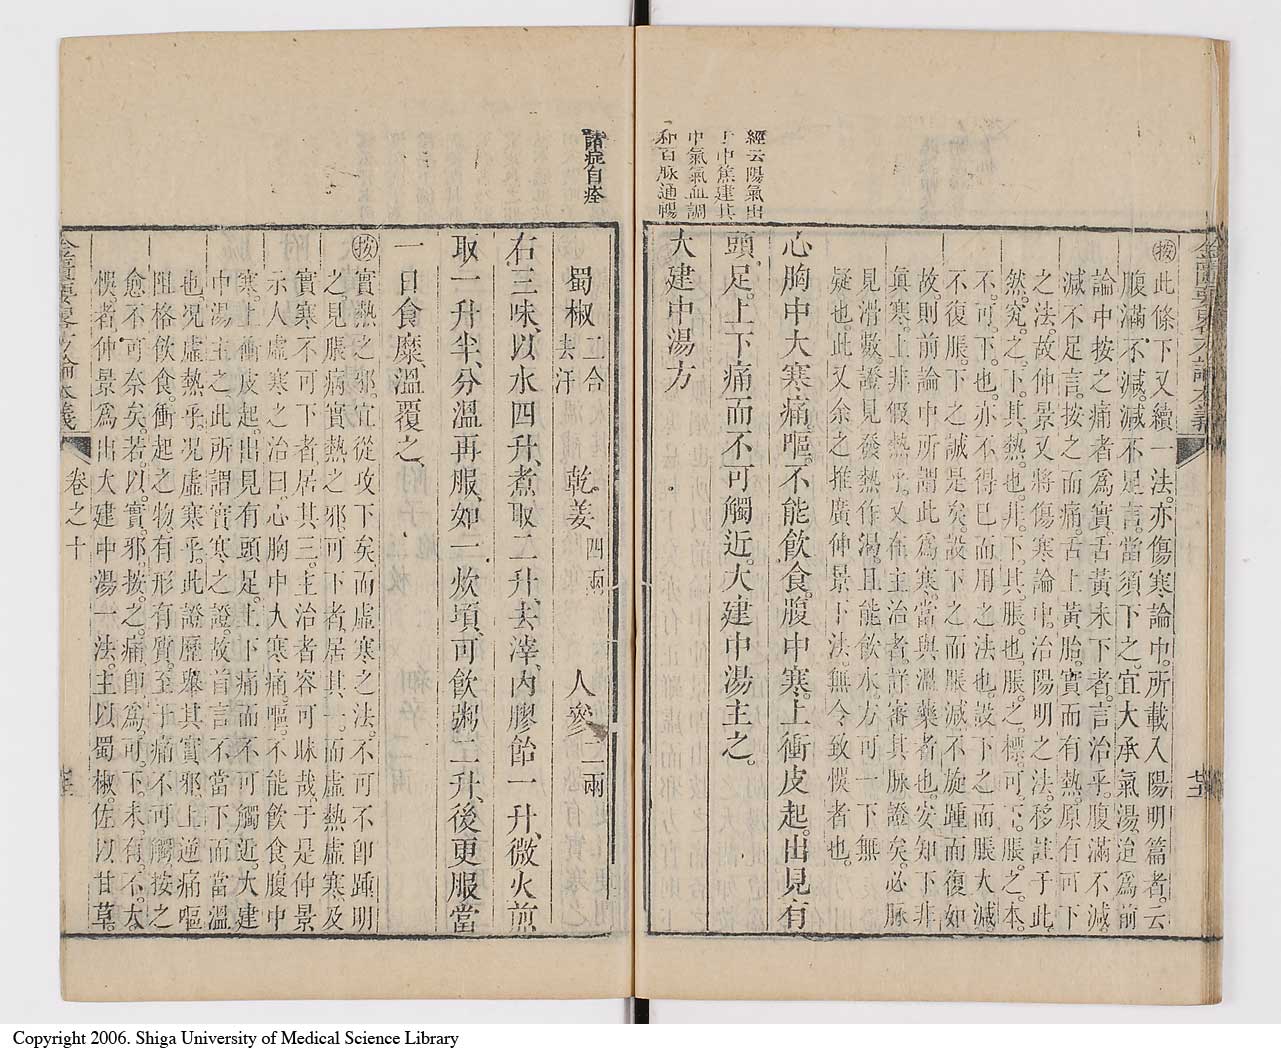 經云陽氣出
于中焦建其
中氣氣血調
和百脉通暢
按此條下又續一法亦傷寒論中所載入陽明篇者云
腹滿不減減不足言當須下之宜大承氣湯迨爲前
論中按之痛者爲實舌黃未下者言治乎腹滿不減
減不足言按之而痛舌上黃胎實而有熱原有可下
之法故仲景又將傷寒論中治陽明之法移註于此
然究之下其熱也非下其脹也脹之標可下脹之本
不可下也亦不得已而用之法也設下之而脹大減
不復脹下之誠是矣設下之而脹減不旋踵而復如
故則前論中所謂此爲寒當與溫藥者也安知下非
眞寒上非假熱乎又在主治者詳審其脉證矣必脉
見滑數證見發熱作渴且能飲水方可一下無
疑也此又余之推廣仲景下法無令致悞者也
心胸中大寒痛嘔不能飲食腹中寒上衝皮起出見有
頭足上下痛而不可觸近大建中湯主之
大建中湯方
諸症自痊
蜀椒二合去汗 乾姜四兩 人參二兩
右三味以水四升煮取二升去滓內膠飴一升微火煎
取一升半分溫再服如一炊頃可飲粥二升後更服當
一日食糜溫覆之
按實熱之邪宜從攻下矣而虛寒之法不可不卽踵明
之見脹病實熱之邪可下者居其一而虛熱虛寒及
實寒不可下者居其三主治者容可昧哉于是仲景
示人虛寒之治曰心胸中大寒痛嘔不能飲食腹中
寒上衝皮起出見有頭足上下痛而不可觸近大建
中湯主之此所謂實寒之證故首言不當下而當溫
也况虛熱乎况虛寒乎此證歷舉其實邪上逆痛嘔
阻格飲食衝起之物有形有質至于痛不可觸按之
愈不可奈矣若以實邪按之痛卽爲可下未有不大
悞者仲景爲出大建中湯一法主以蜀椒佐以甘草
金匱要畧方論本義
卷之十